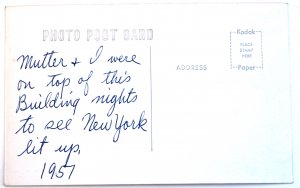 PHOTO POST CARD
Kodak
PLACE
STAMP
HERE
Paper
ADDRESS
Mutter + I were
on top of this
Building nights
to see New York
lit up,
1957